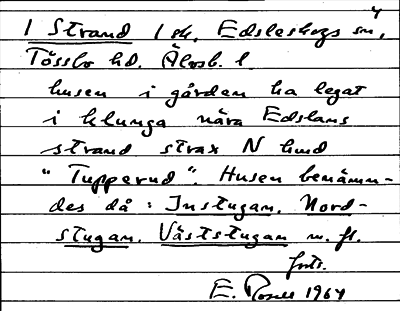 1 Strand 1 sk. Edsleskogs sn,
Tössbo hd. Älvsb. l.
husen i gården ha legat
i klunga nära Edslans
strand strax N kund
"Tupperud". Husen benämn-
des då: Instugan. Nord-
stugan. Väststugan m. fl.
forts.
E. 1964